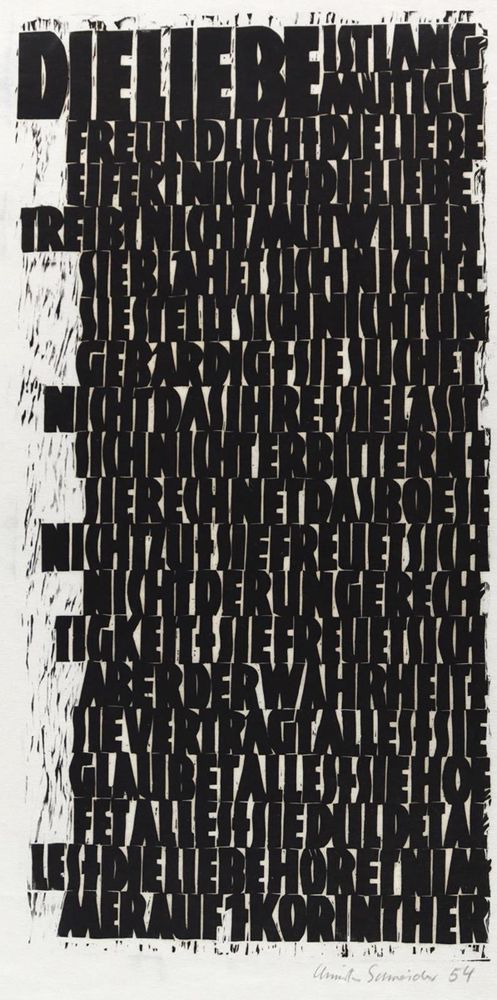 DIE LIEBE IST LANG
MUTIG U
FREUNDLICH + DIE LIEBE
EIFERT NICHT + DIE LIEBE
TREIBT NICHT MUTWILLEN
SIE BLÄHET SICH NICHT +
SIE STELLT SICH NICHT UN
GEBÄRDIG + SIE SUCHET
NICHT DAS IHRE + SIE LÄSST
SICH NICHT ERBITTERN +
SIE RECHNET DAS BOESE
NICHT ZU + SIE FREUET SICH
NICHT DER UNGERECH
TIGKEIT + SIE FREUET SICH
ABER DER WAHRHEIT +
SIE VERTRÄGT ALLES + SIE
GLAUBET ALLES + SIE HOF
FET ALLES + SIE DULDET AL
LES + DIE LIEBE HÖRET NIM
MER AUF + KORINTHER
Schneider 54